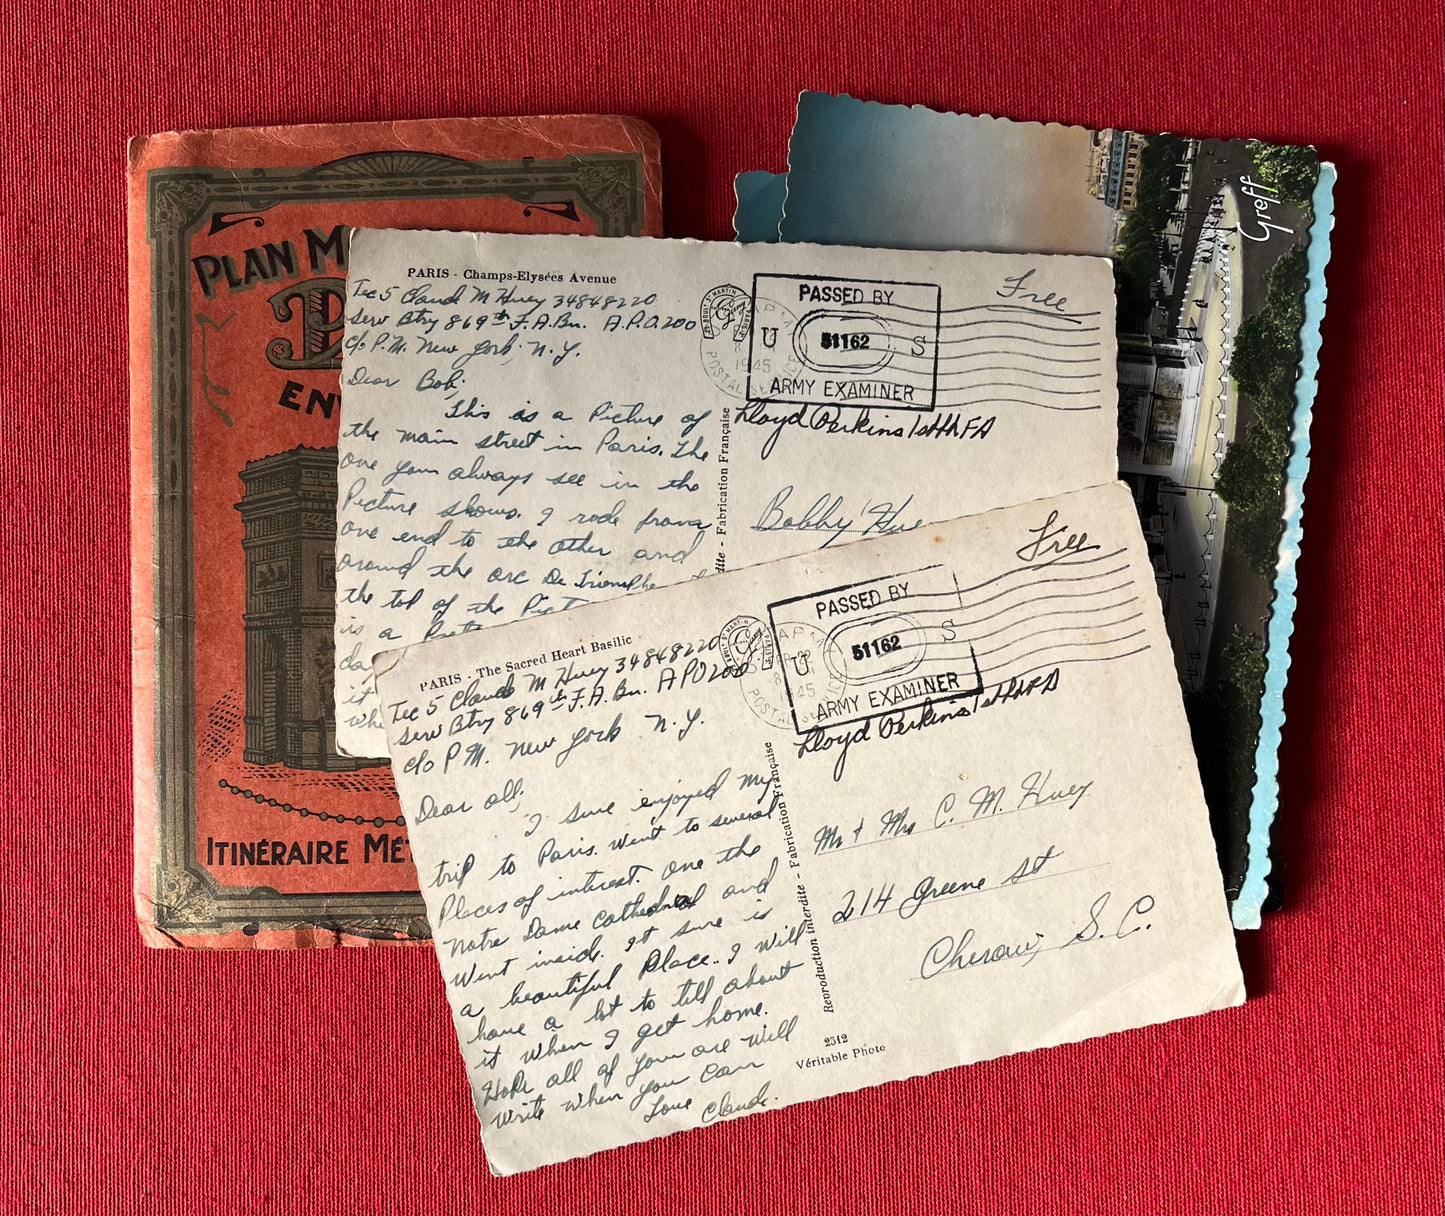 PLAN M
P
EN
ITINÉRAIRE MÉT
Greff
PARIS - Champs-Elysées Avenue
Tec 5 Claude M Huey 34848220
Serv Btry 869th F.A.Bn. A.P.O. 200
c/o P.M. New York, N.Y.
Dear Bob,
This is a Picture of
the main street in Paris. The
one you always see in the
Picture shows. I rode from
one end to the other and
around the arc De Triomphe
the top of the Pict
is a
da
it
whe
PASSED BY
U 51162 S
ARMY EXAMINER
1945
POSTAL SERVICE
Free
Lloyd Perkins 1st Lt FA
Fabrication Française
Bobby Hue
PARIS - The Sacred Heart Basilic
Tec 5 Claude M Huey 34848220
Serv Btry 869th F.A. Bn. APO 200
c/o P.M. New York N.Y.
Dear all,
I sure enjoyed my
trip to Paris. Went to several
Places of interest. one the
Notre Dame Cathedral and
Went inside. It sure is
a beautiful Place. I Will
have a lot to tell about
it when I get home.
Hope all of you are Well
Write when you Can
Love Claude.
PASSED BY
U 51162 S
ARMY EXAMINER
1945
Free
Lloyd Perkins 1st Lt FA
Reproduction interdite - Fabrication Française
Mr & Mrs C. M. Huey
214 Greene St
Cheraw, S.C.
2512
Véritable Photo